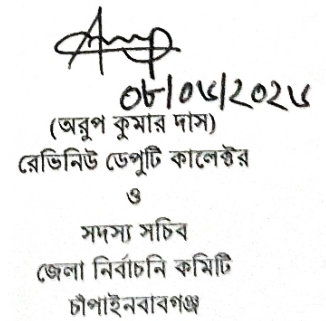 (অরুপ কুমার দাস)
রেভিনিউ ডেপুটি কালেক্টর
ও
সদস্য সচিব
জেলা নির্বাচনি কমিটি
চাঁপাইনবাবগঞ্জ